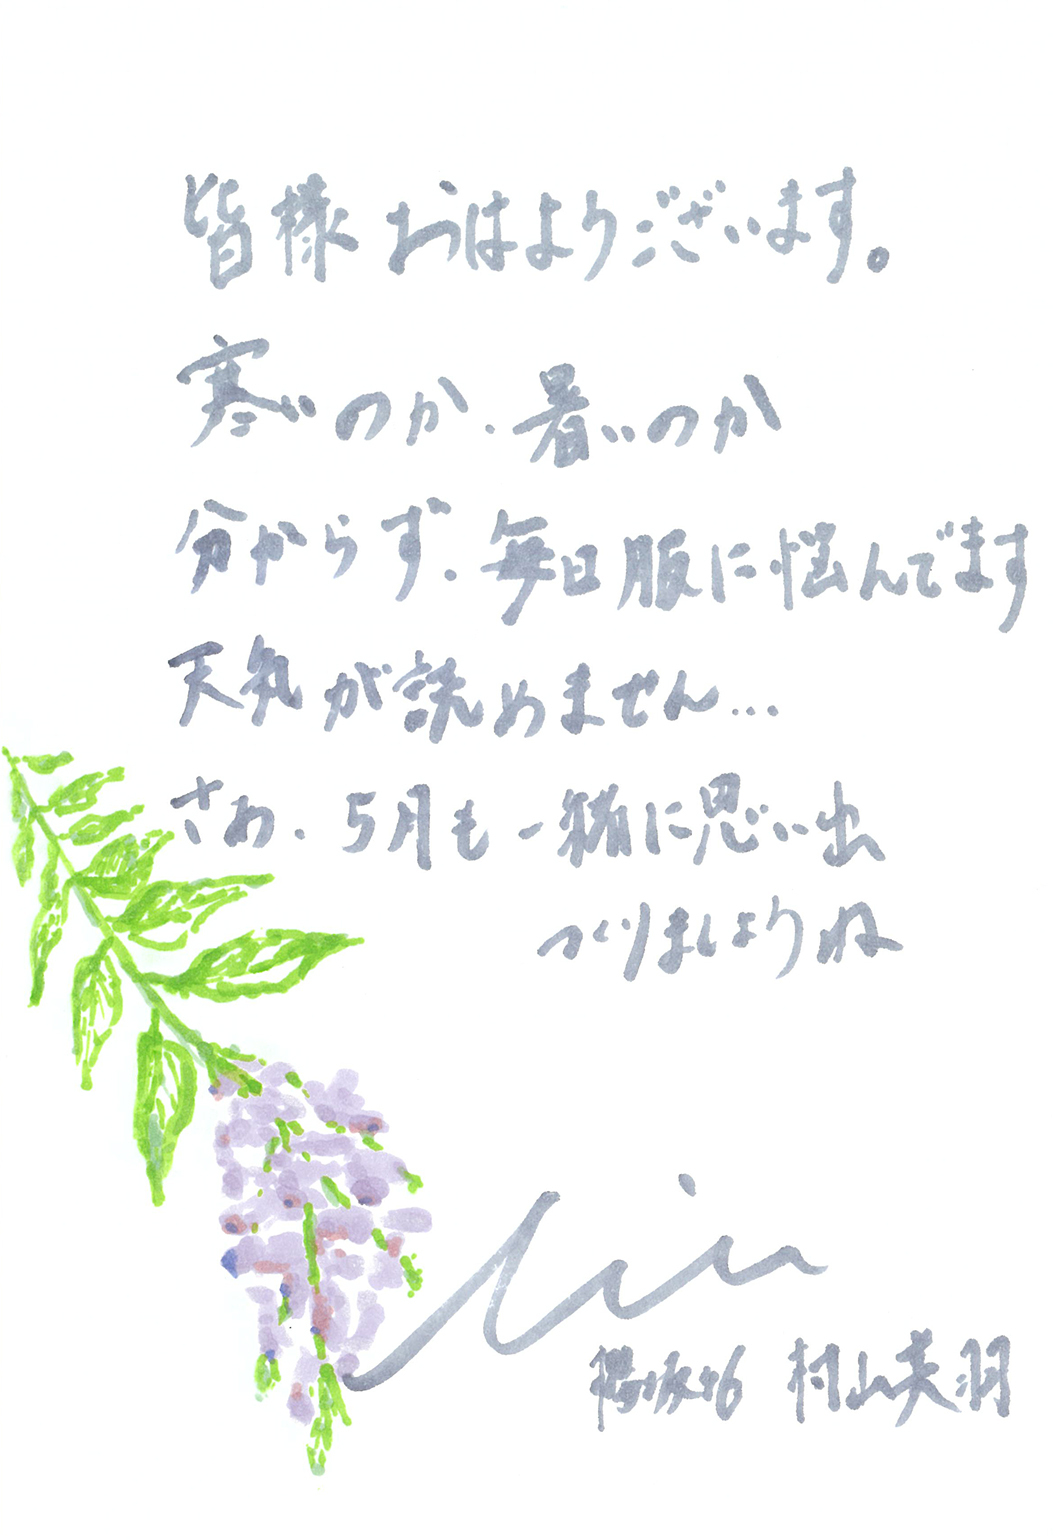 皆様 おはようございます。
寒いのか、暑いのか
分からず、毎日服に悩んでます
天気が読めません...
さあ、5月も一緒に思い出
つくりましょうね
櫻坂46 村山美羽